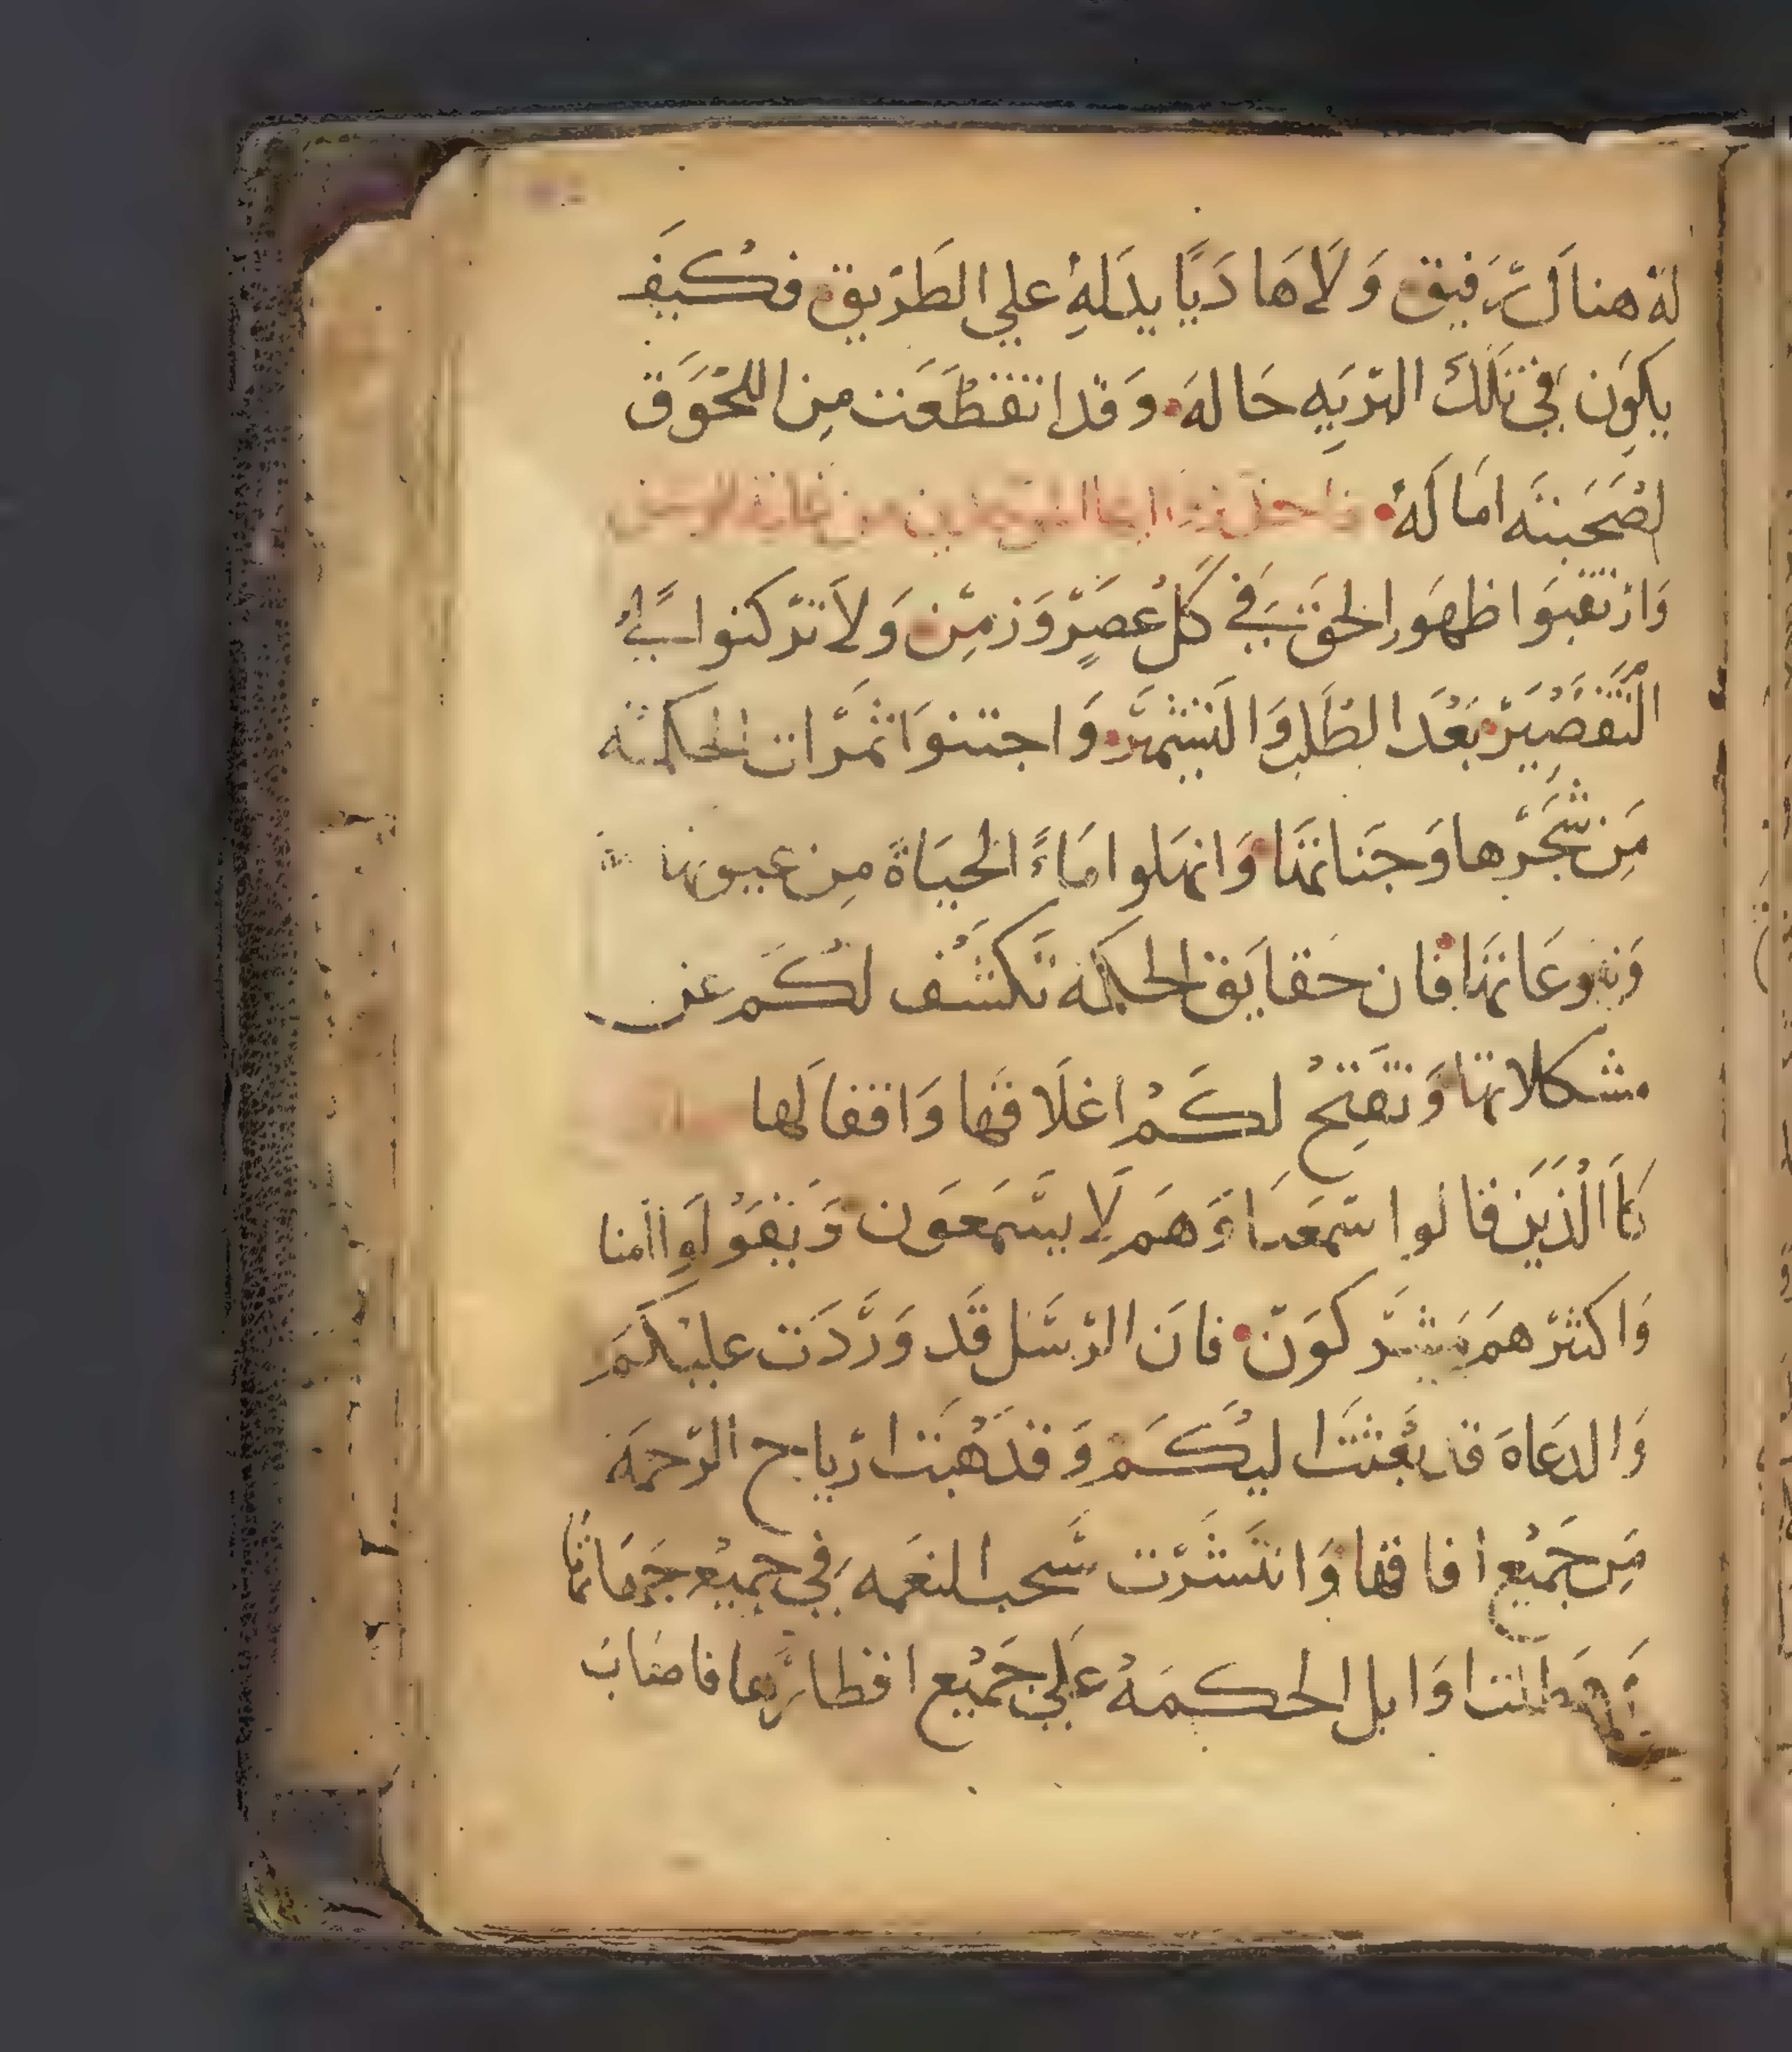 له هناك رفيق ولا هاديا يدله علي الطريق فكيف
يكون في تلك البريه حاله وقد انقطعت من اللحوق
لصحبته اماله فاحذروا ايها
وارتقبوا ظهور الحق في كل عصر وزمن ولا تركنوا الي
التقصير بعد الطلب والتشمير واجتنوا ثمرات الحكمه
من شجرها وجنانها وانهلوا ماء الحياة من عيونها
فان حقايق الحكمه تكشف لكم عن
مشكلاتها وتفتح لكم اغلاقها واقفالها
كاالذين قالوا سمعنا وهم لا يسمعون ويقولوا امنا
واكثرهم مشركون فان الرسل قد وردت عليكم
والدعاه قد بعثت اليكم وقد هبت ارياح الرحمه
من جميع افاقها وانتشرت سحب النعمه في جميع جهاتها
وابل الحكمه علي جميع اقطارها فاصاب